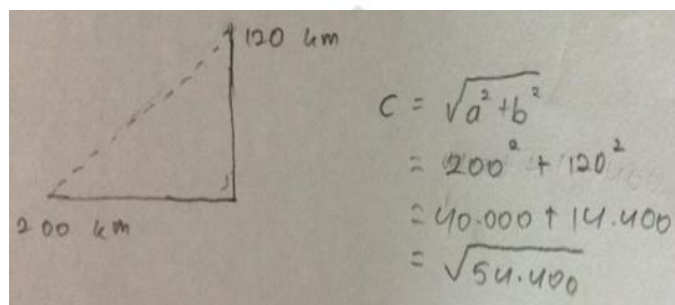 120 km
200 km
C = √a² + b²
= 200² + 120²
= 40.000 + 14.400
= √54.400